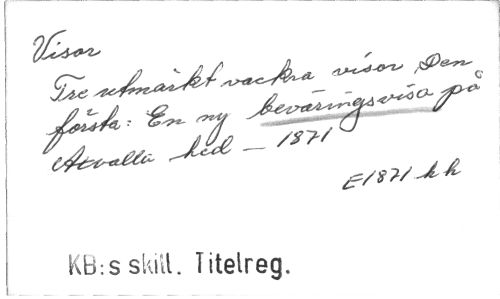 Visor
Tre utmärkt vackra visor Den
första: En ny beväringsvisa på
Axvalla hed – 1871
E1871 h h
KB:s skill. Titelreg.